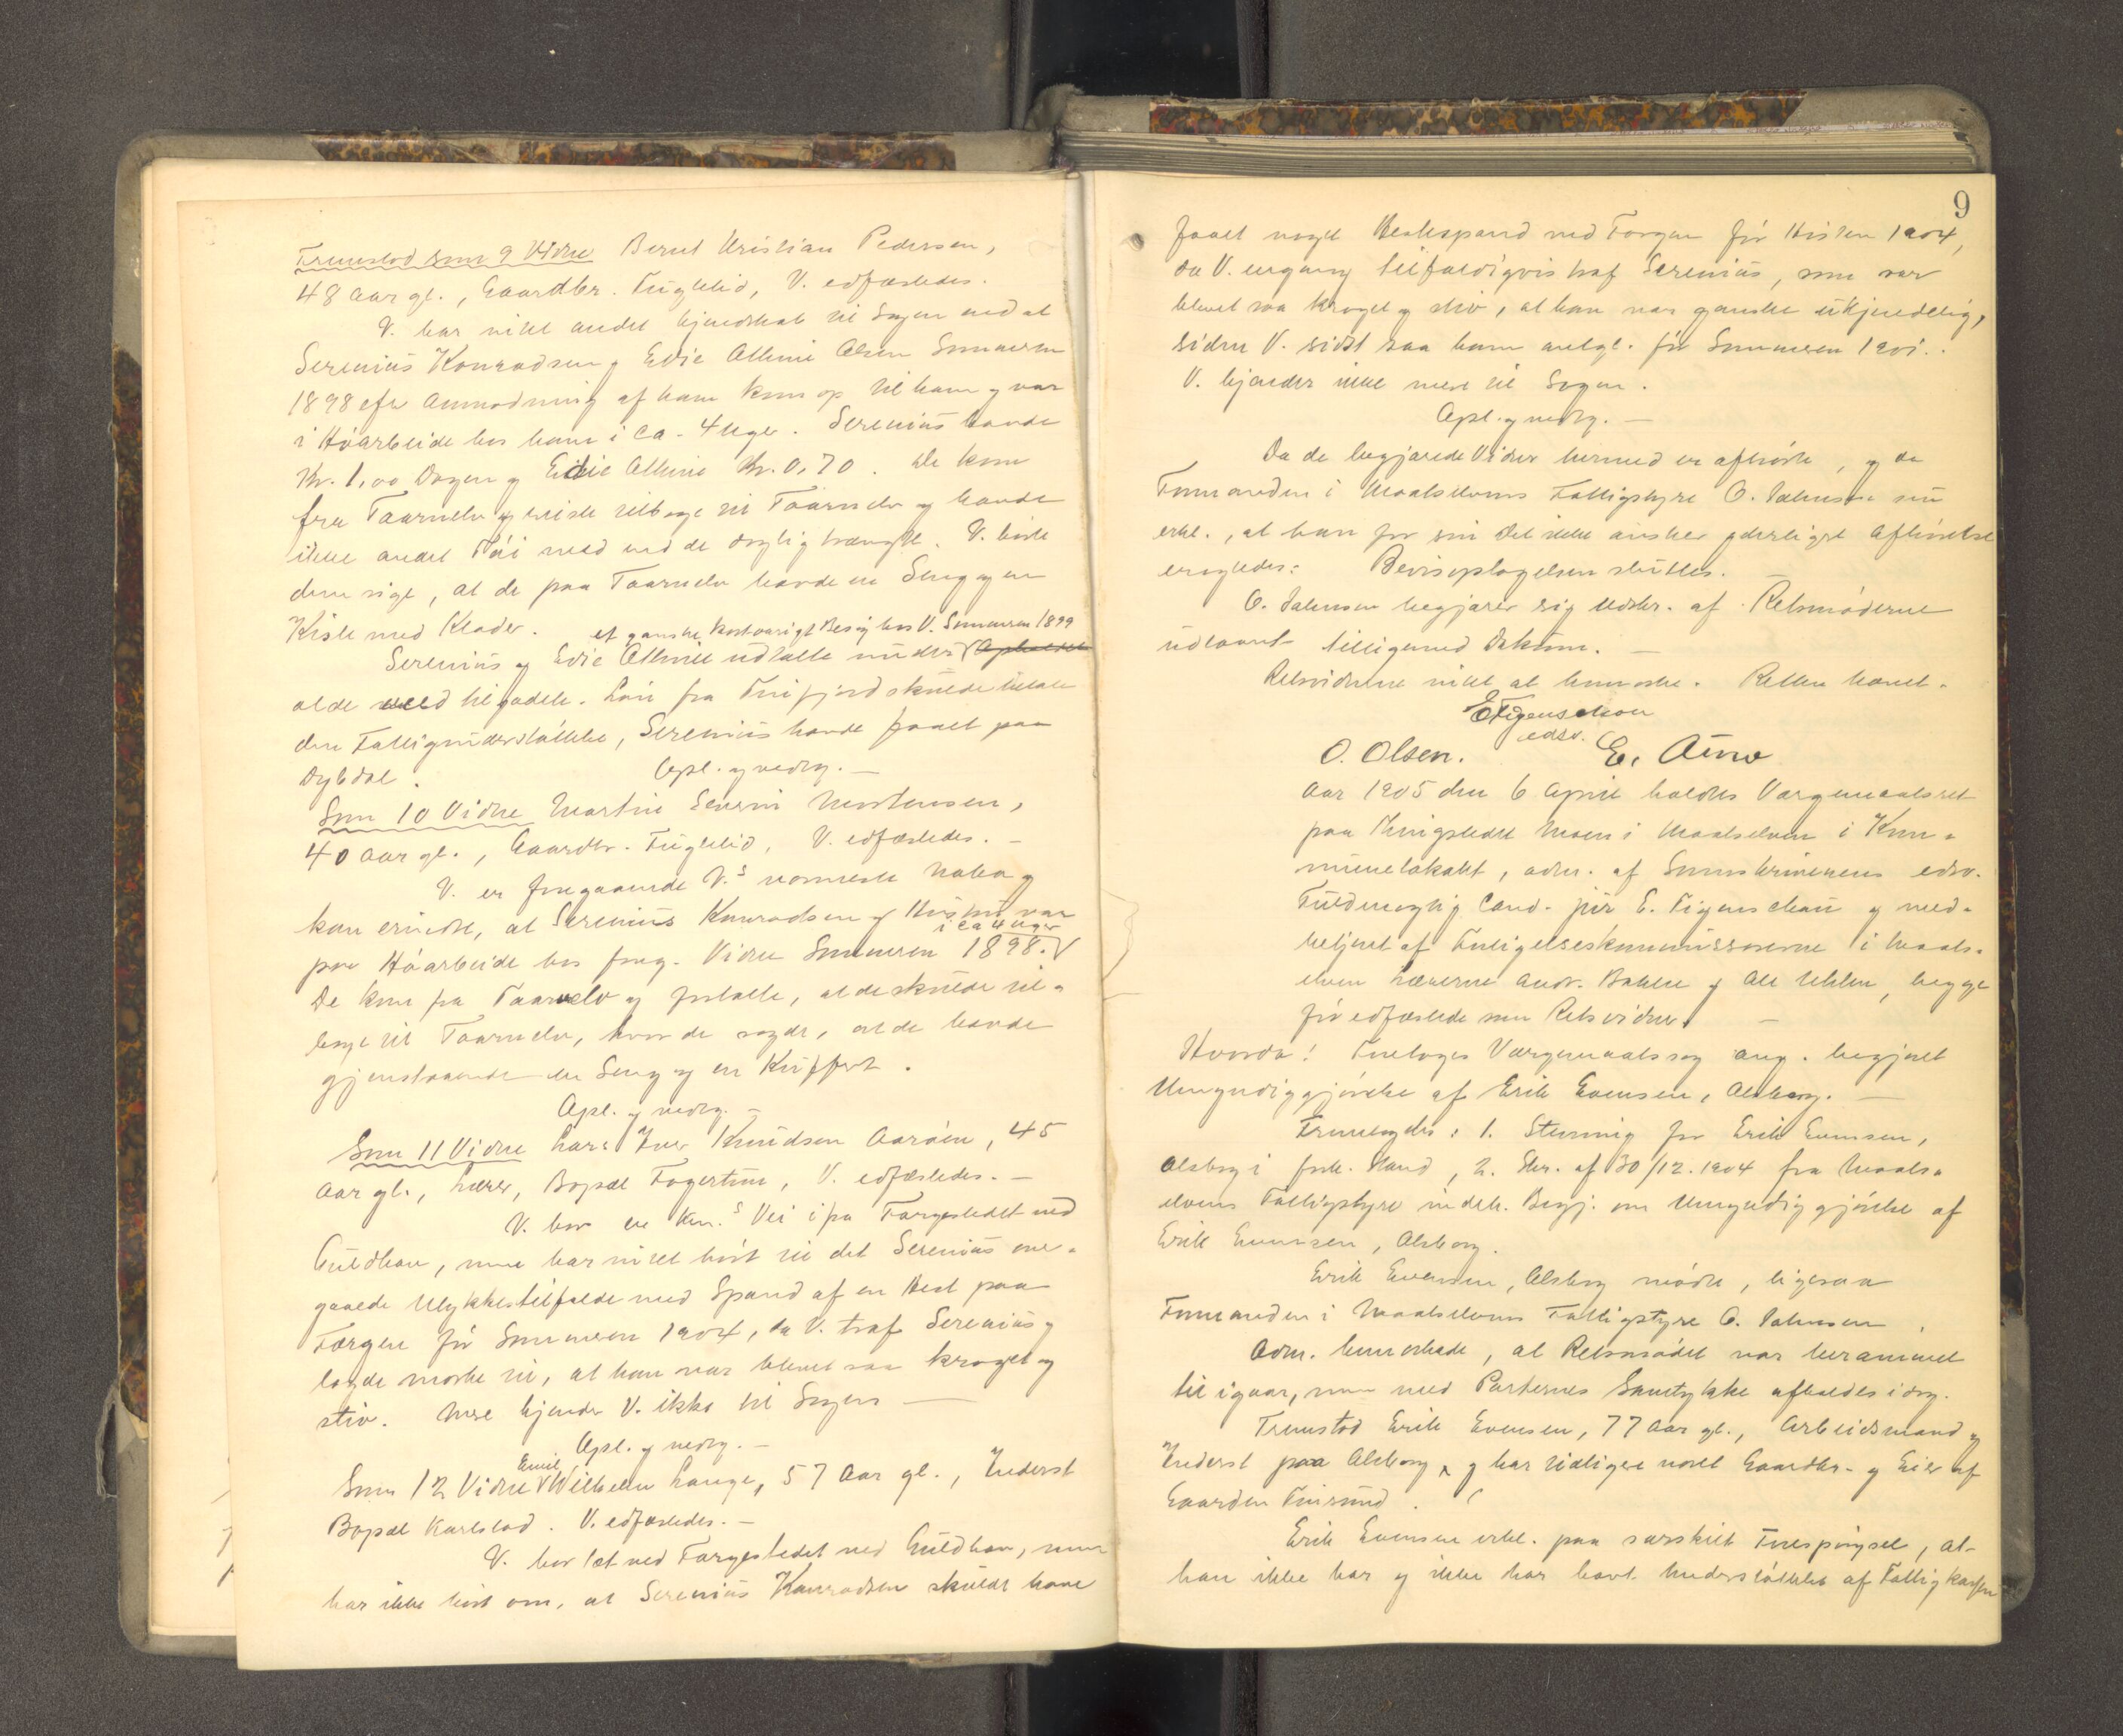 Fremstod som 9 Vidne Bernt Kristian Pedersen,
48 Aar gl., Gaardbr. Fuglelid, V. edfæstedes.
V. har intet andet kjendskab til Sagen end at
Serenius Konradsen og Edie Alhine Olsen Sommeren
1898 efter Anmodning af ham kom op til ham og var
i Høarbeide hos ham i ca. 4 Uger. Serenius havde
Kr. 1,00 Dagen og Edie Alhine Kr. 0,70. De kom
fra Taarnelv og reiste tilbage til Taarnelv og havde
ikke andet Tøi med end de daglig trængte. V. hørte
dem sige, at de paa Taarnelv havde en Seng og en
Kiste med Klæder. et ganske kortvarigt Besøg hos V. Sommeren 1899
Serenius og Edie Alhine udtalte under Opholdet
at de med til Lari fra Finfjord skulde betale
den Fattigunderstøttelse, Serenius havde faaet paa
Dybdal. Opl. og vedtg. —
Som 10 Vidne Martin Severin Mortensen,
40 Aar gl., Gaardbr. Fuglelid, V. edfæstedes. —
V. er foregaaende V.s nærmeste Nabo og
kan erindre, at Serenius Konradsen og Hustru var
i ca 4 Uger
paa Høarbeide hos foreg. Vidne Sommeren 1898.
De kom fra Taarnelv og fortalte, at de skulde til-
bage til Taarnelv, hvor de sagde, at de havde
gjenstaaende en Seng og en Kuffert.
Opl. og vedtg. —
Som 11 Vidne Lars Iver Knudsen Aarøen, 45
Aar gl., Lærer, Bopæl Fagertun, V. edfæstedes. —
V. bor en Km.s Vei ifra Færgestedet ved
Guldhav, men har intet hørt til det Serenius over-
gaaede Ulykkestilfælde med Spand af en Hest paa
Færgen før Sommeren 1904, da V. traf Serenius og
lagde mærke til, at han var blevet saa kroget og
stiv. Mere kjender V. ikke til Sagen —
Opl. og vedtg. —
Emil
Som 12 Vidne Wilhelm Lange, 57 Aar gl., Inderst
Bopæl Karlstad. V. edfæstedes. —
V. bor tæt ved Færgestedet ved Guldhav, men
har ikke hørt om, at Serenius Konradsen skulde have
9
faaet noget Hestespand ved Færgen før Høsten 1904,
da V. engang tilfældigvis traf Serenius, som var
blevet saa kroget og stiv, at han var ganske ukjendelig,
siden V. sidst saa ham antgl. før Sommeren 1901..
V. kjender ikke mere til Sagen.
Opl. og vedtg. —
Da de begjærede Vidner hermed er afhørte, og da
Formanden i Maalselvens Fattigstyre O. Johnsen nu
erkl., at han for sin Del ikke ønsker yderligere Afhørelse
eragtedes: Bevisoptagelsen sluttes.
O. Johnsen begjærer sig Udskr. af Retsmøderne
udlaant tilligemed Dokum. —
Retsvidnerne intet at bemærke. Retten hævet.
E Figenschou
edsv.
O. Olsen. E. Aune
Aar 1905 den 6 April holdtes Værgemaalsret
paa Thingstedet Moen i Maalselven i Kom-
munelokalet, adm. af Sorenskriverens edsv.
Fuldmægtig Cand. jur E. Figenschau og med-
betjent af Forligelseskommissærerne i Maals-
elven Lærerne Andr. Bakken og Ole Uhlen, begge
før edfæstede som Retsvidner. —
Hvorda! Foretages Værgemaalssag ang. begjært
Umyndiggjørelse af Erik Evensen, Alsborg. —
Fremlagdes: 1. Stevning for Erik Evensen,
Alsborg i fork. Stand, 2. Skr. af 30/12.1904 fra Maals-
elvens Fattigstyre indeh. Begj. om Umyndiggjørelse af
Erik Evensen, Alsborg.
Erik Evensen, Alsborg mødte, ligesaa
Formanden i Maalselvens Fattigstyre O. Johnsen.
Adm. bemærkede, at Retsmødet var berammet
til igaar, men med Parternes Samtykke afholdes idag.
Fremstod Erik Evensen, 77 Aar gl., Arbeidsmand og
Inderst paa Alsborg, og har tidligere været Gaardbr. og Eier af
Gaarden Finsund.
Erik Evensen erkl. paa særskilt Forespørgsel, at
han ikke har og ikke har havt Understøttelse af Fattigkassen